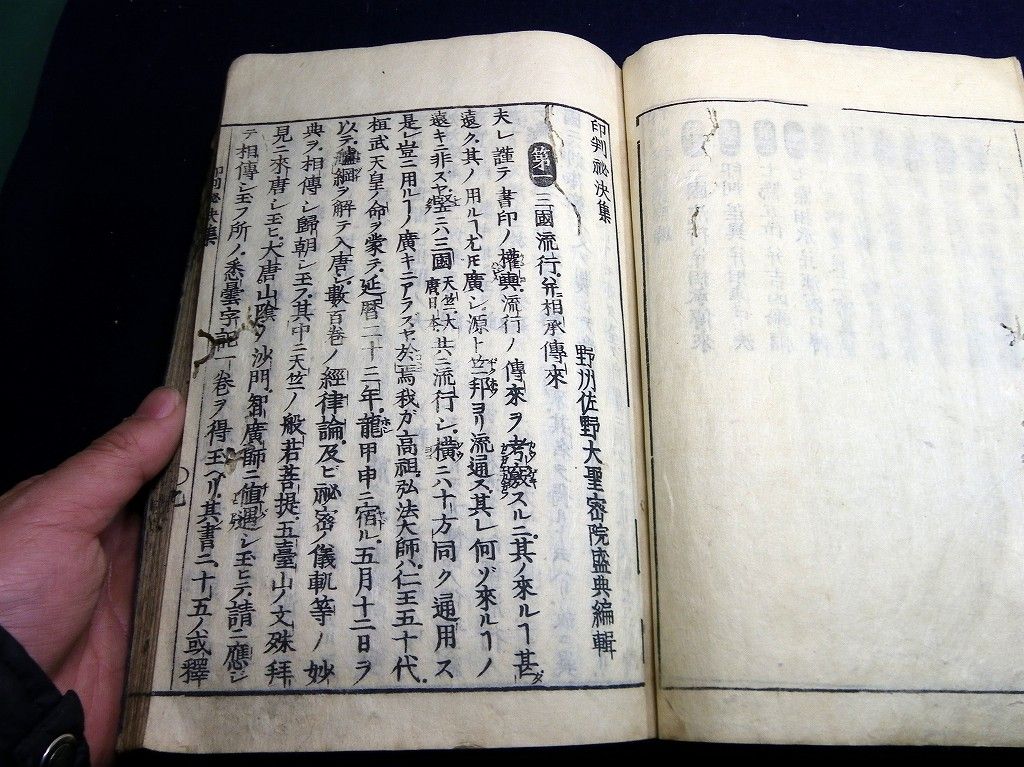 印判祕決集
野州佐野大聖密院盛典編輯
第一 三國流行幷相承傳來
夫レ謹テ書印ノ權輿流行ノ傳來ヲ考察スルニ其ノ來ルヿ甚
遠ク其ノ用ルヿ尤モ廣シ源ト竺邦ヨリ流通ス其レ何ゾ來ルヿノ
遠キニ非スヤ竪ニハ三國天竺大唐日本共ニ流行シ橫ニハ十方同ク通用ス
是レ豈ニ用ルヿノ廣キニアラズヤ於焉我ガ高祖弘法大師ハ仁王五十代
桓武天皇ノ命ヲ蒙テ延曆二十三年龍甲申ニ宿ル五月十二日ヲ
以テ纜ヲ解テ入唐シ數百卷ノ經律論及ビ祕密ノ儀軌等ノ妙
典ヲ相傳シ歸朝シ玉フ其中ニ天竺ノ般若菩提五臺山ノ文殊拜
見ニ來唐シ玉ヒ大唐山陰ノ沙門智廣師ニ値遇シ玉ヒテ請ニ應シ
テ相傳シ玉フ所ノ悉曇字記一卷ヲ得玉ヘリ其書ニ十五ノ或釋
印判祕決集
九